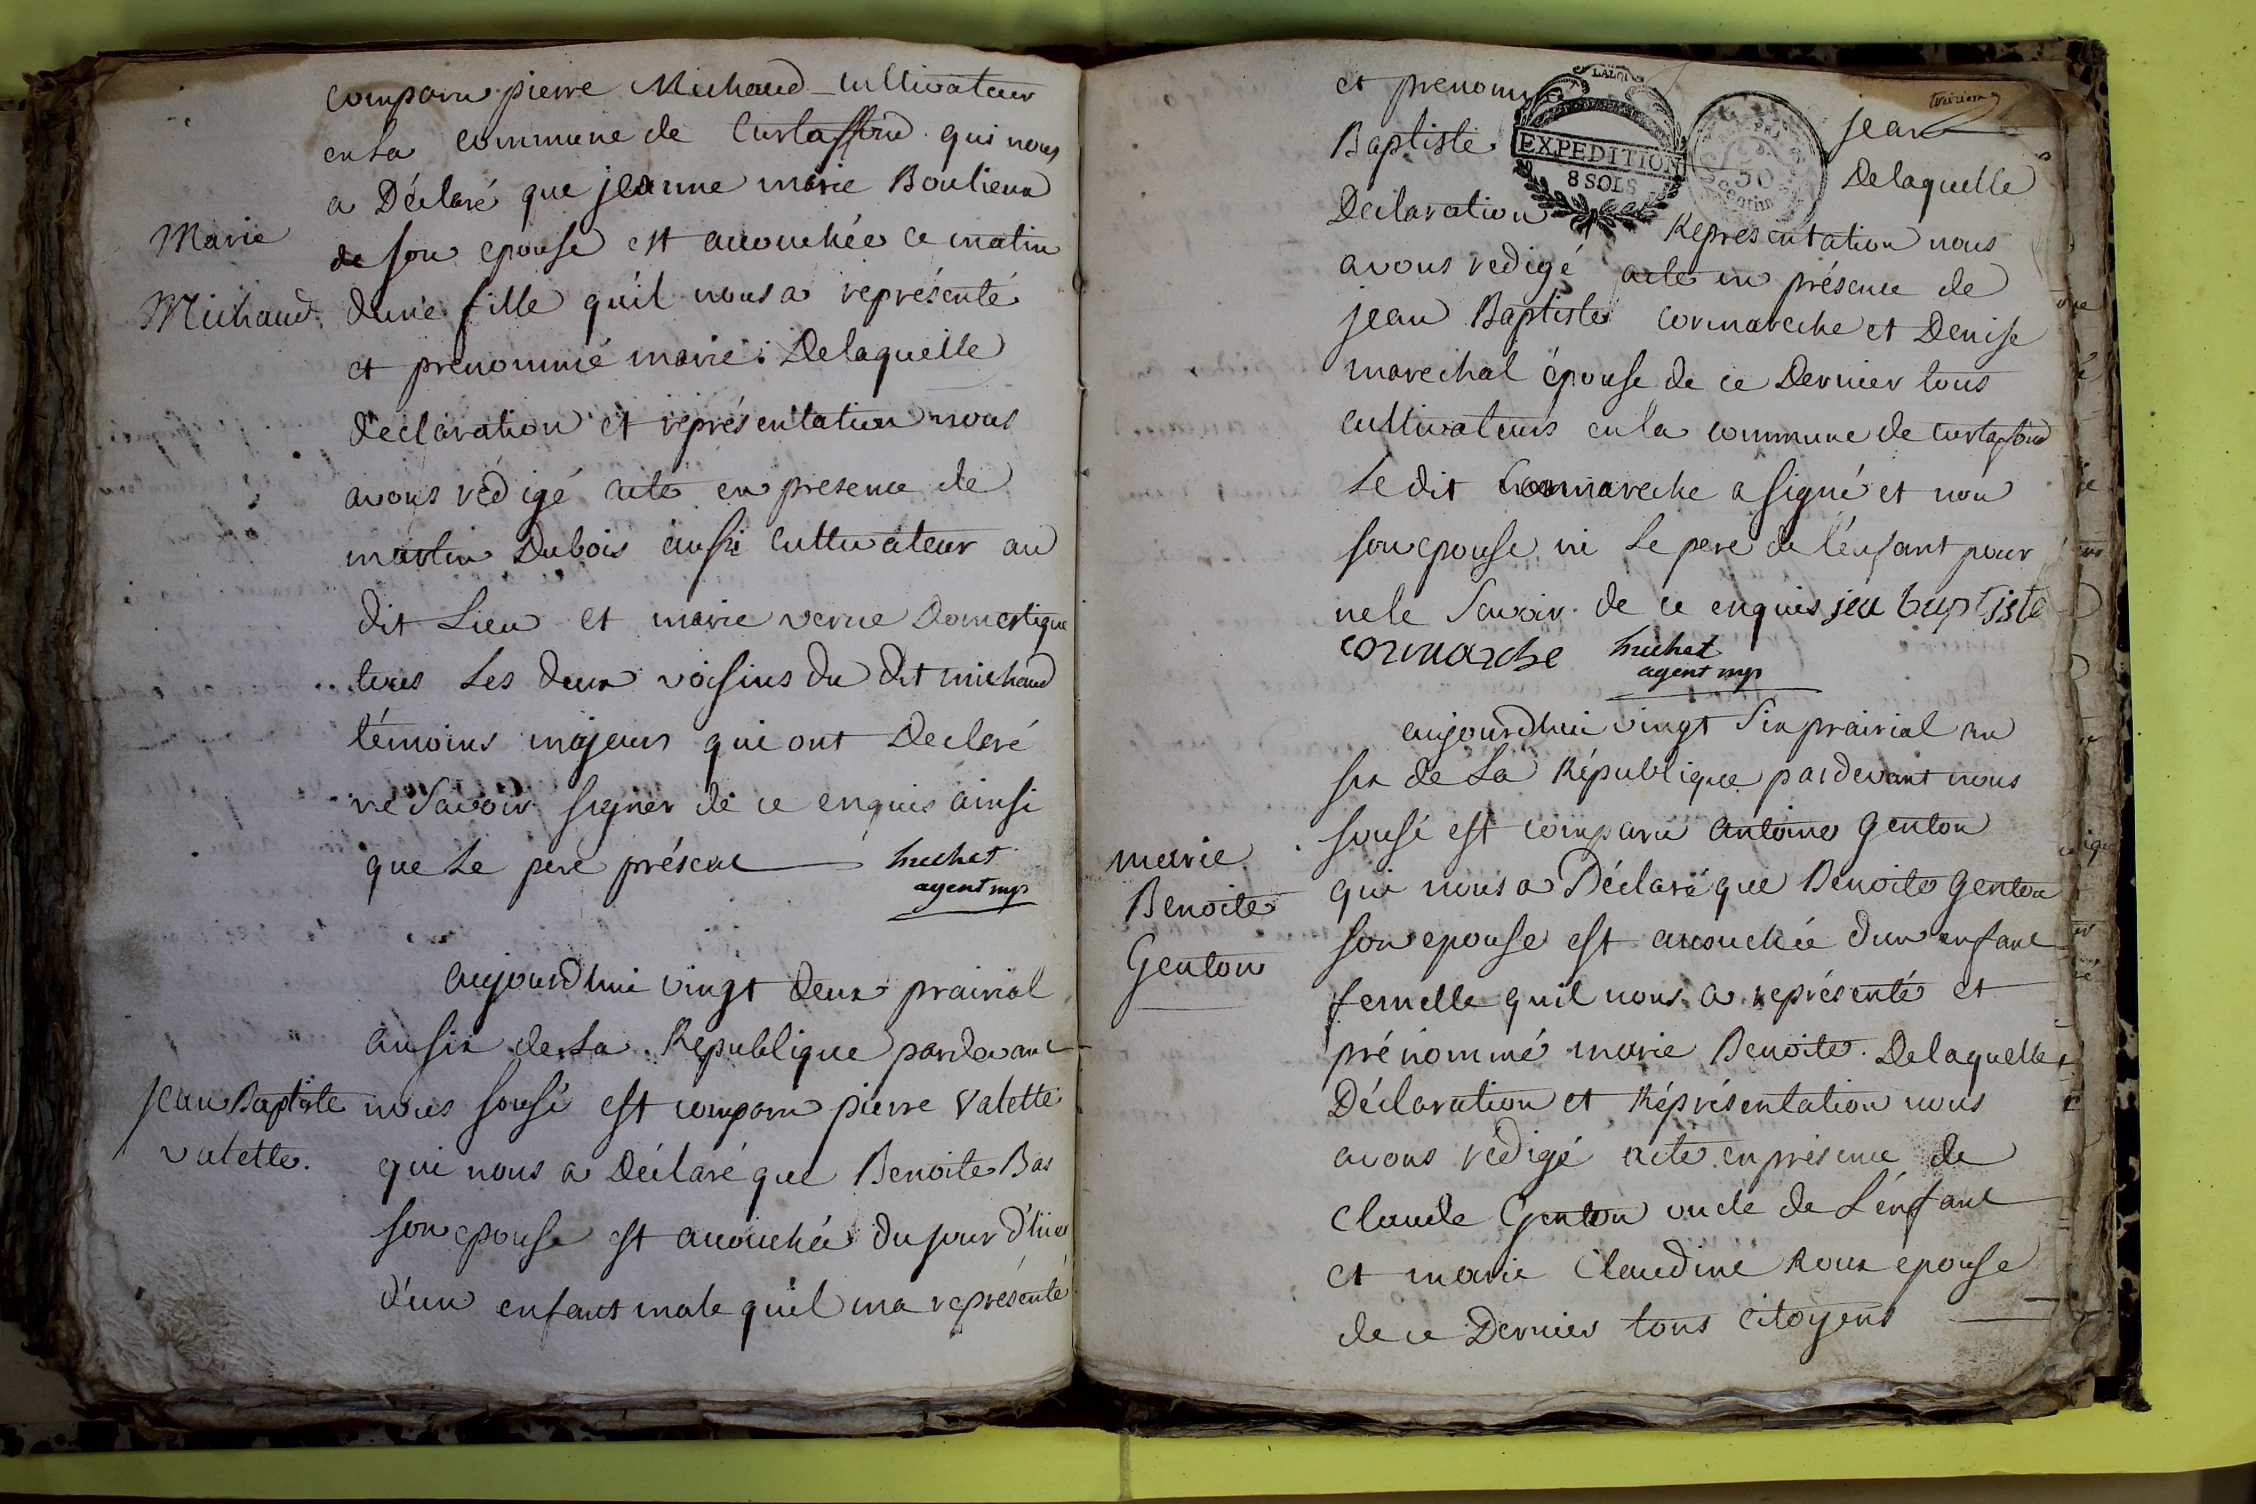 comparu pierre Michaud cultivateur
en la commune de Curtaffond qui nous
a Déclaré que jeanne marie Boulieux
Marie
de son epouse est accouchée ce matin
Michaud
dune fille quil nous a représenté
et prenommé marie: Delaquelle
déclaration et représentation nous
avons rédigé acte en presence de
martin Dubois aussi cultivateur au
dit Lieu et marie verne Domestique
tous Les deux voisins du dit michaud
témoins majeurs qui ont Declaré
ne Savoir signer de ce enquis ainsi
que Le pere présent
huchet
agent mpl
aujourdhui vingt deux prairial
an six de La République pardevant
jean Baptiste
valette.
nous sousé est comparu pierre valette
qui nous a Déclaré que Benoite Bas
son epouse est accouchée du jour d'hier
d'un enfant male quil ma représenté
et prenommé jean
LA LOI
EXPEDITION
8 SOLS
50
Centim
Baptiste Delaquelle
Declaration Représentation nous
avons redigé acte en présence de
jean Baptiste Cormareche et Denise
marechal épouse de ce Dernier tous
cultivateurs en la commune de curtafond
Le dit Cormareche a signé et non
son epouse ni Le pere de l'enfant pour
ne le Savoir de ce enquis jea baptiste
cormarche
huchet
agent mpl
aujourdhui vingt six prairial an
six de La République pardevant nous
sousé est comparu antoine Genton
marie
Benoite
Genton
qui nous a Déclaré que Benoite Genton
son epouse est accouchée d'un enfant
femelle quil nous a représenté et
prénommé marie Benoite. Delaquelle
Déclaration et Réprésentation nous
avons rédigé acte en présence de
Claude Genton oncle de L'enfant
et marie Claudine Roux epouse
de ce Dernier tous Citoyens